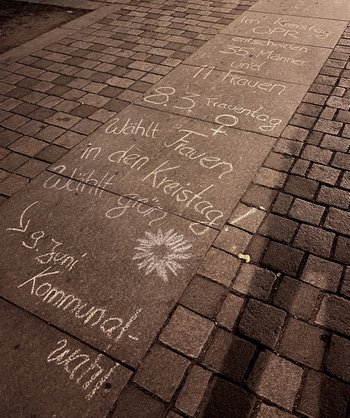 Im Kreistag
OPR
entscheiden
35 Männer
und
11 Frauen
8.3. Frauentag
Wählt Frauen
in den Kreistag!
Wählt grün
9. Juni
Kommunal-
wahl!